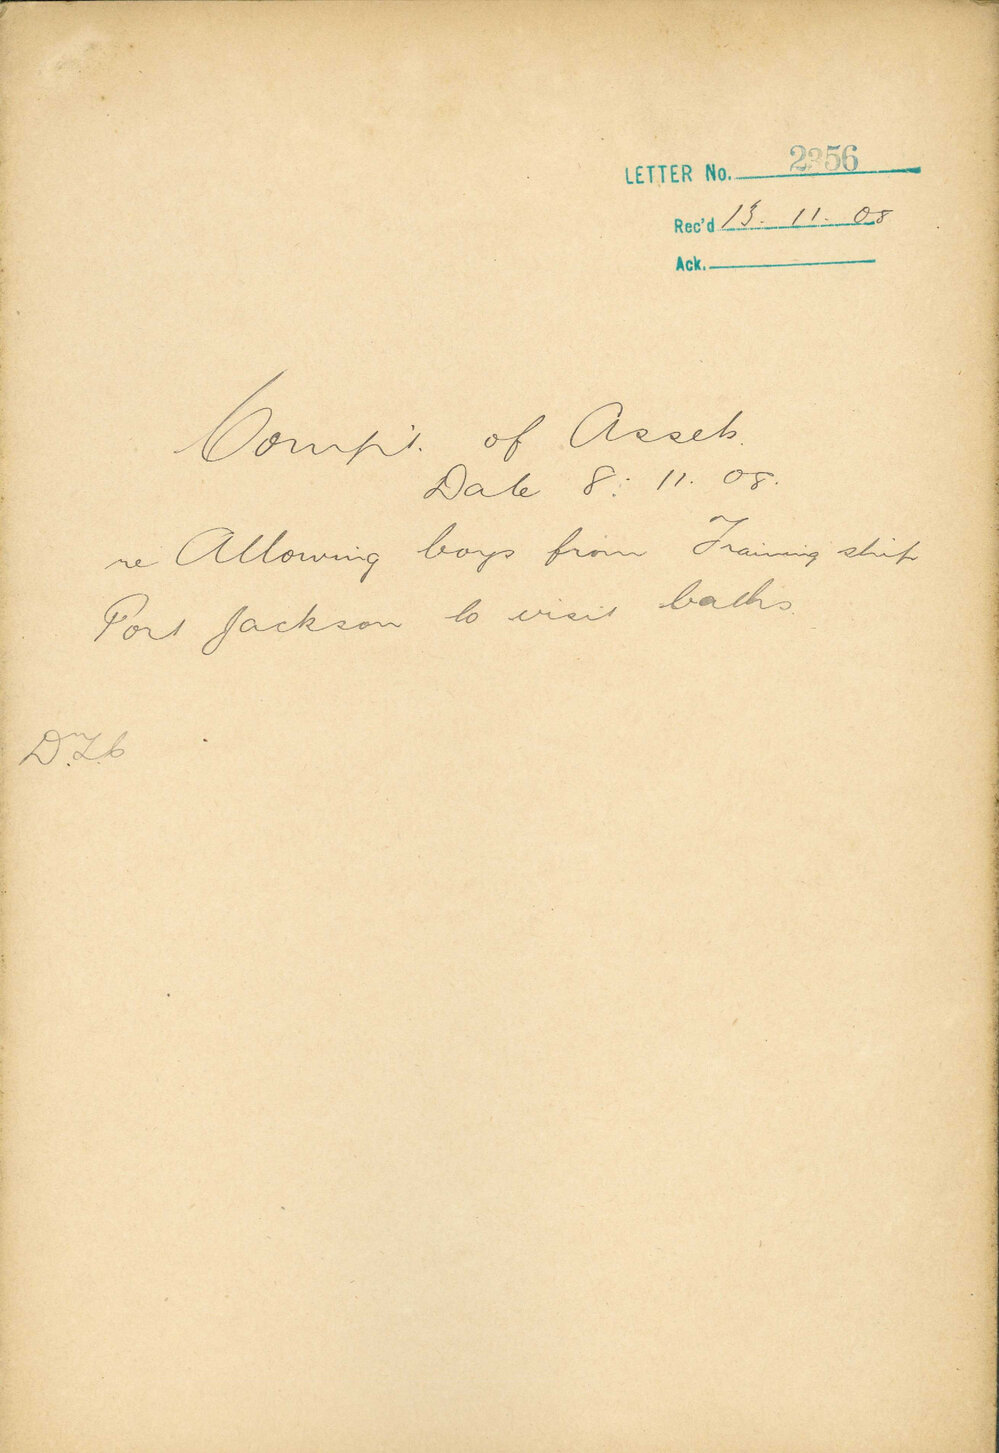 LETTER No. 2356
Rec'd 13. 11. 08
Ack.
Compt. of Assets.
Date 8. 11. 08.
re Allowing boys from Training ship
Port Jackson to visit baths.